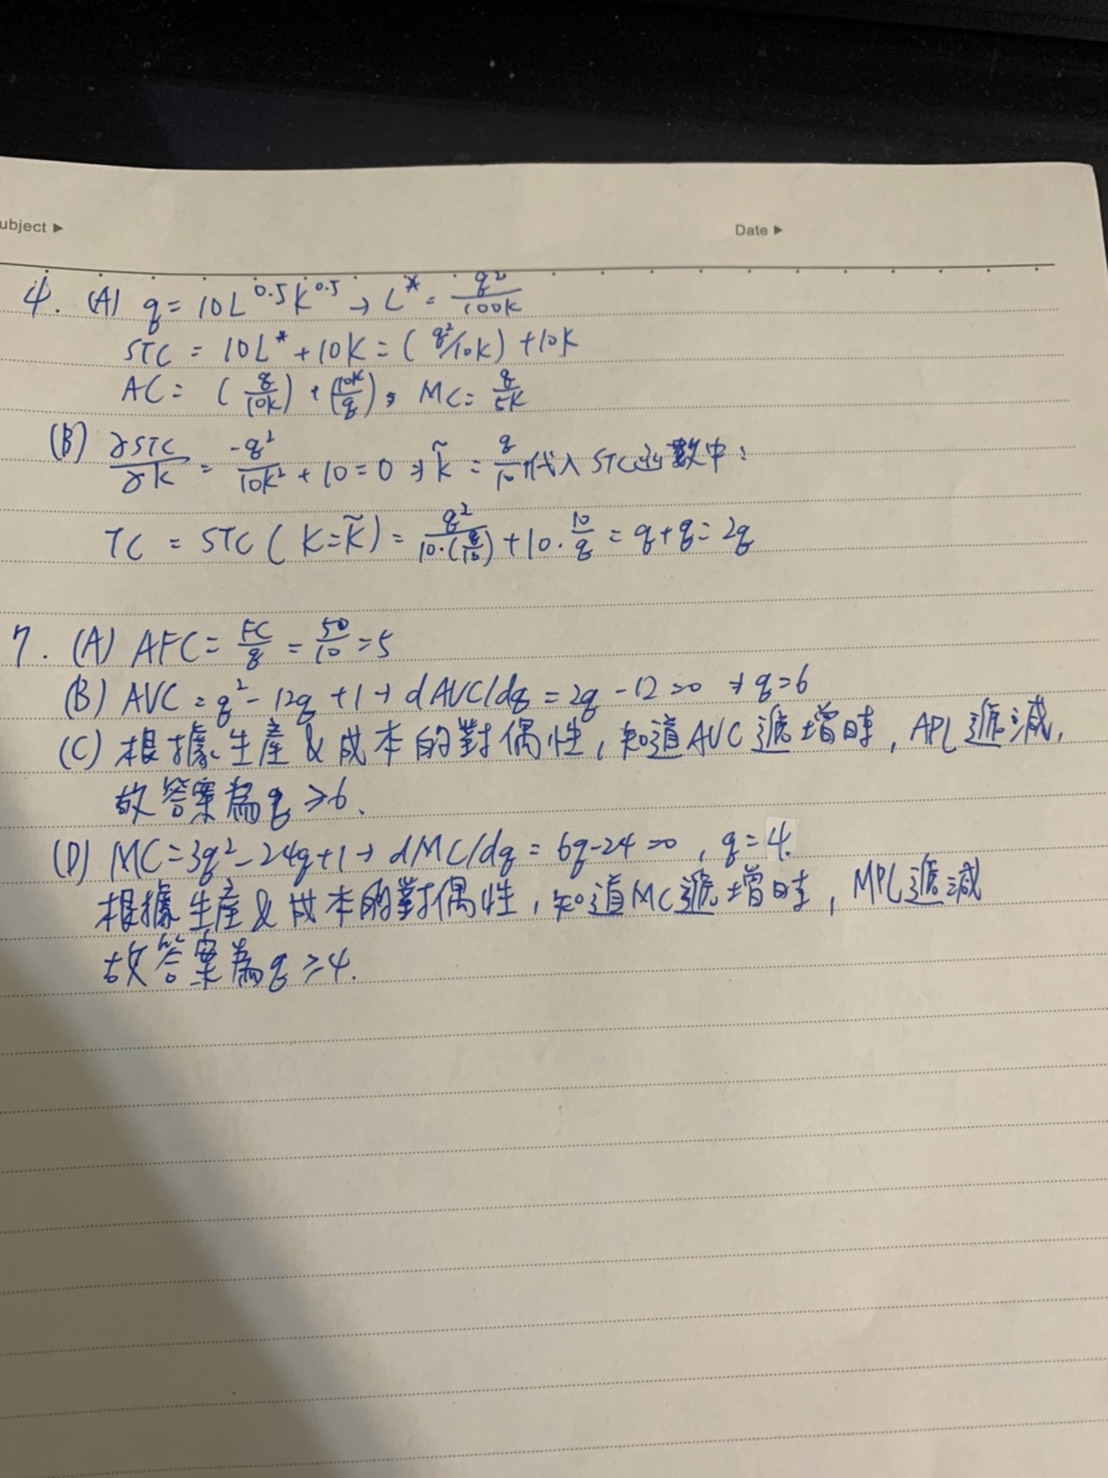 ubject ▶
Date ▶
4. (A) q = 10L^0.5 K^0.5 → L* = q²/100K
STC = 10L* + 10K = (q²/10K) + 10K
AC = (q/10K) + (10K/q), MC = q/5K
(B) ∂STC/∂K = -q²/10K² + 10 = 0 ⇒ K̃ = q/10 代入 STC函數中:
TC = STC (K=K̃) = q²/10·(q/10) + 10·10/q = q+q = 2q
7. (A) AFC = FC/q = 50/10 = 5
(B) AVC = q² - 12q + 1 → dAVC/dq = 2q - 12 = 0 → q = 6
(C) 根據生產&成本的對偶性, 知道AVC遞增時, APL遞減,
故答案為q ≥ 6.
(D) MC = 3q² - 24q + 1 → dMC/dq = 6q - 24 = 0, q = 4.
根據生產&成本的對偶性, 知道MC遞增時, MPL遞減
故答案為q ≥ 4.